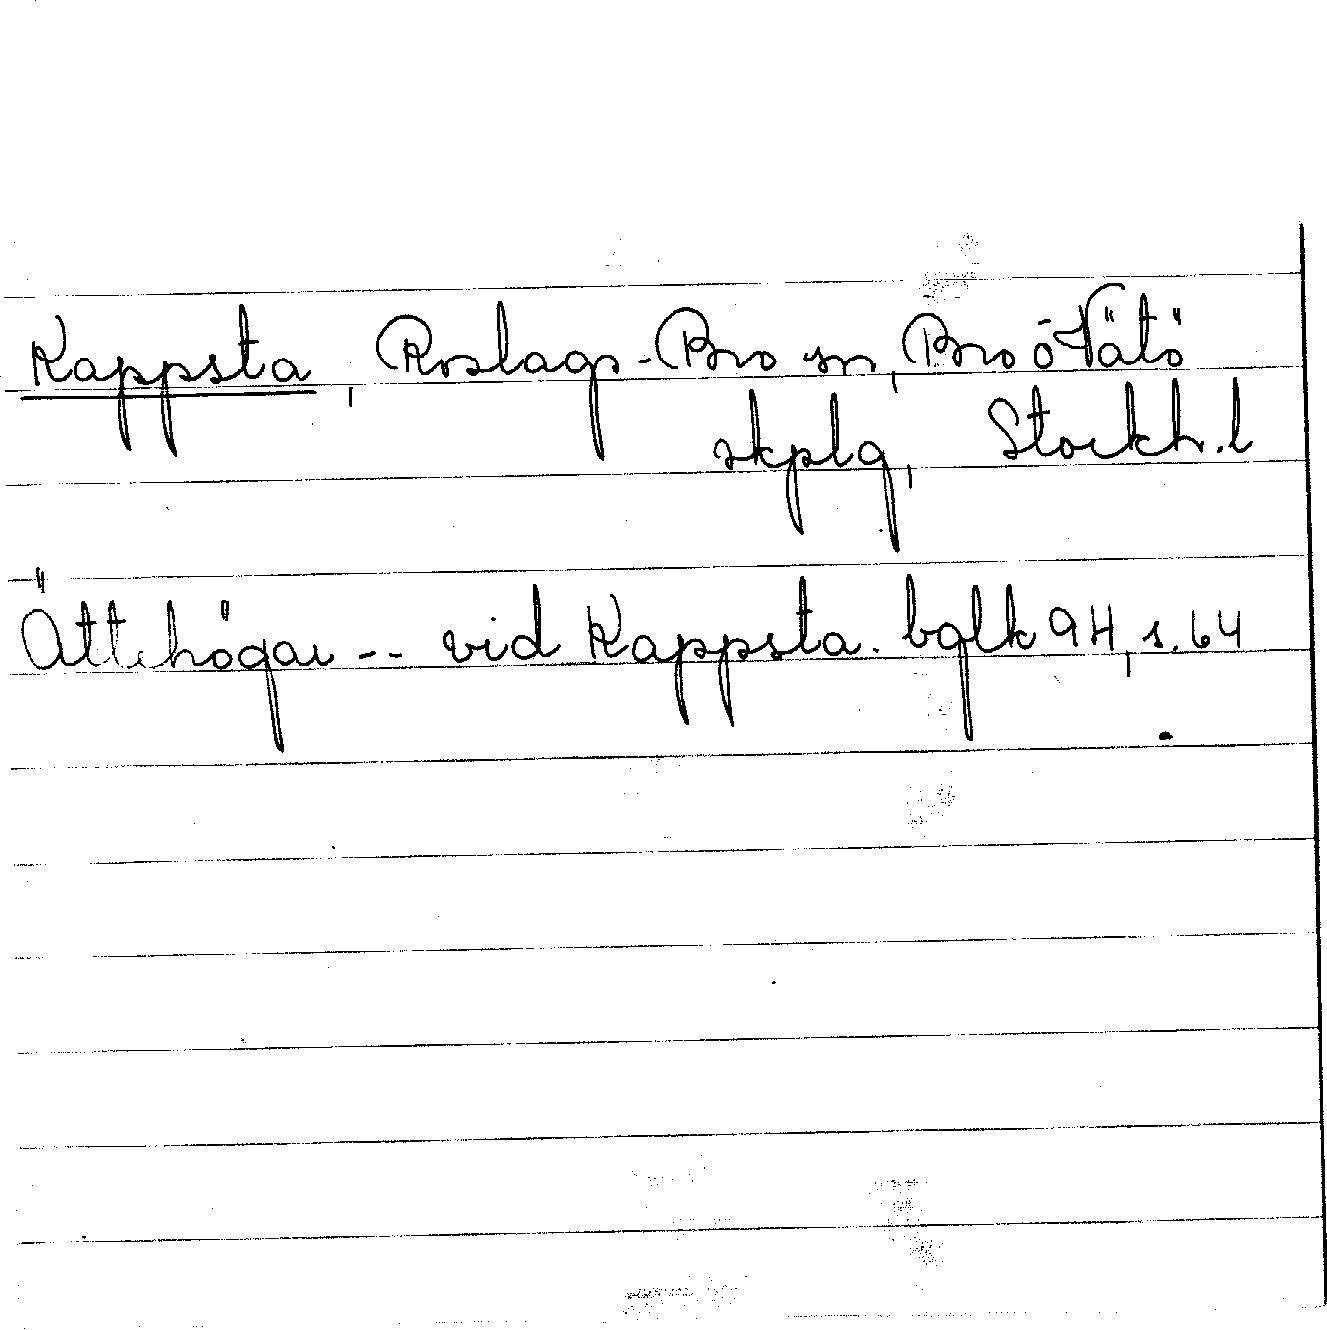 Kappsta, Roslags-Bro sn, Bro o Vätö
skplg, Stockh. l
Ättehögar -- vid Kappsta. bglk 94, s. 64